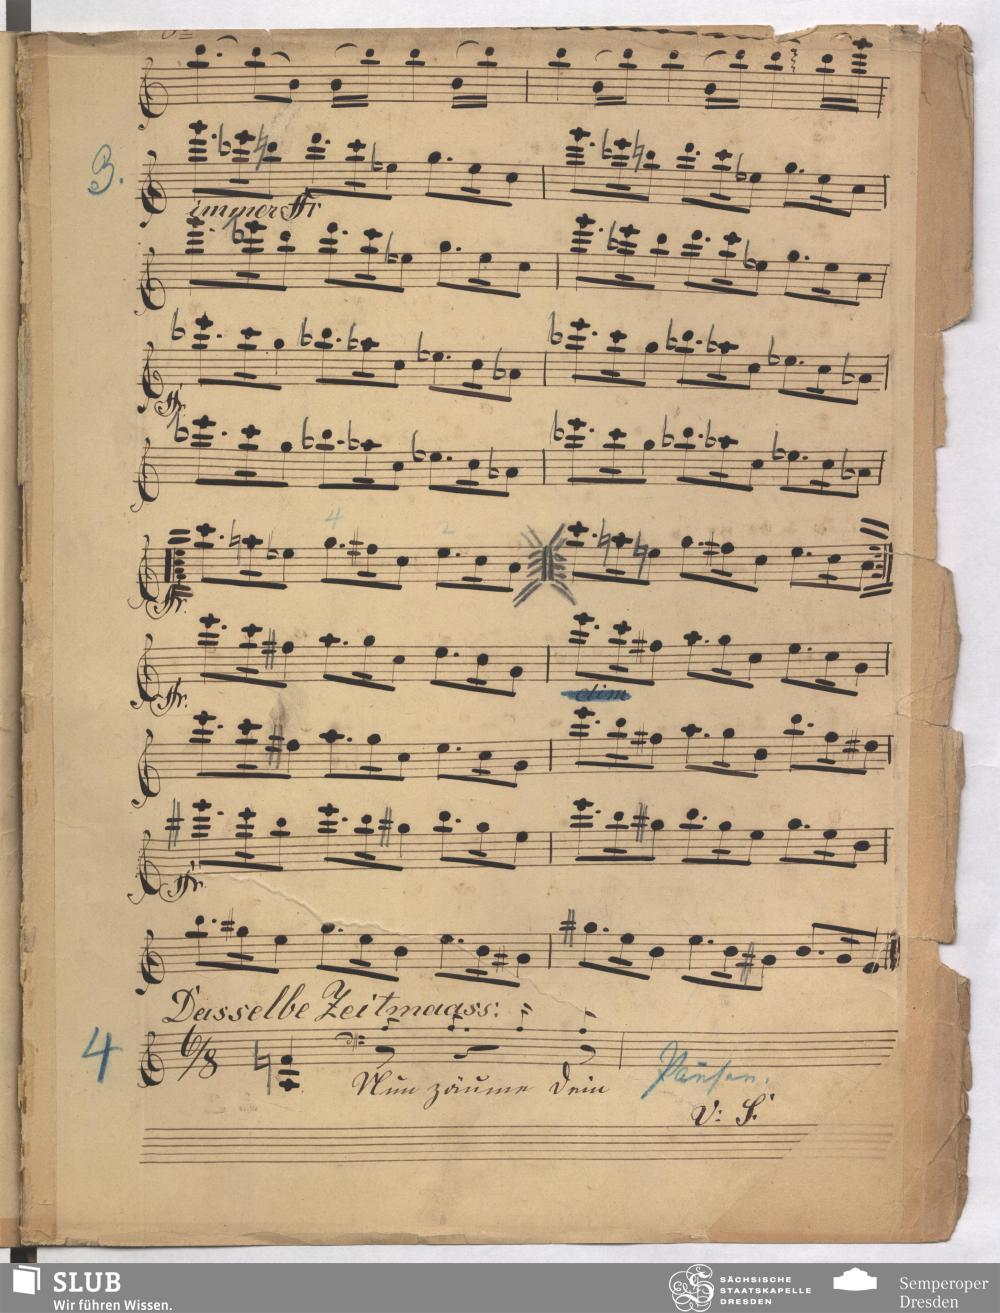 3.
immer ffr
ffr.
4 2
ffr.
ffr.
dim
ffr.
Dasselbe Zeitmaass:
4 6/8
Nun zäume Dein Pausen.
V: S:
SLUB
Wir führen Wissen.
SÄCHSISCHE
STAATSKAPELLE
DRESDEN
Semperoper
Dresden